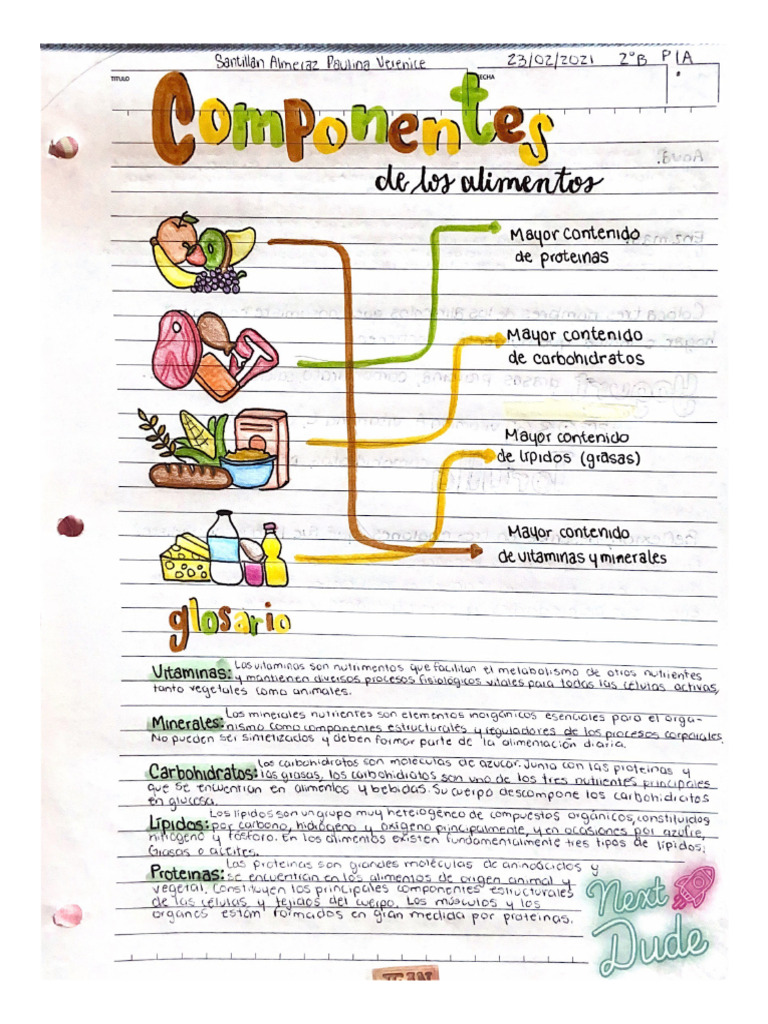 Santillán Almeraz Paulina Verenice 23/02/2021 2°B P/A
TITULO FECHA
Componentes
de los alimentos
Mayor contenido
de proteinas
Mayor contenido
de carbohidratos
Mayor contenido
de lípidos (grasas)
Mayor contenido
de vitaminas y minerales
glosario
Vitaminas: Las vitaminas son nutrimentos que facilitan el metabolismo de otros nutrientes
y mantienen diversos procesos fisiológicos vitales para todas las células activas,
tanto vegetales como animales.
Minerales: Los minerales nutrientes son elementos inorgánicos esenciales para el orga-
nismo como componentes estructurales y reguladores de los procesos corporales.
No pueden ser sintetizados y deben formar parte de la alimentación diaria.
Carbohidratos: Los carbohidratos son moléculas de azúcar. Junto con las proteinas y
las grasas, los carbohidratos son uno de los tres nutrientes principales
que se encuentran en alimentos y bebidas. Su cuerpo descompone los carbohidratos
en glucosa.
Lípidos: Los lípidos son un grupo muy heterogéneo de compuestos orgánicos, constituidos
por carbono, hidrógeno y oxígeno principalmente, y en ocasiones por azufre,
nitrógeno y fósforo. En los alimentos existen fundamentalmente tres tipos de lípidos:
Grasas o aceites.
Proteinas: Las proteinas son grandes moléculas de aminoácidos y
se encuentran en los alimentos de origen animal y
vegetal. Constituyen los principales componentes estructurales
de las células y tejidos del cuerpo. Los músculos y los
órganos están formados en gran medida por proteinas.
Next
Dude